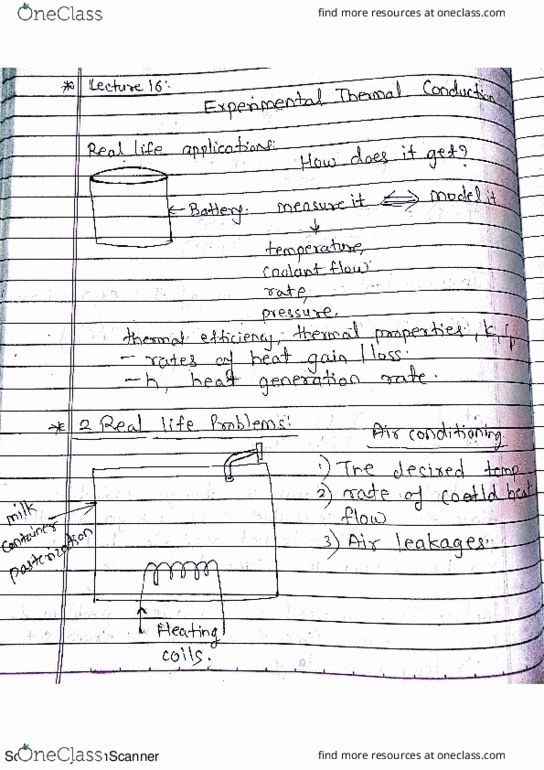 OneClass
find more resources at oneclass.com
* Lecture 16:
Experimental Thermal Conduction
Real life applications:
How does it get?
← Battery.
measure it ⟺ model it
↓
temperature,
coolant flow
rate,
pressure.
thermal efficiency, thermal properties, k,
- rates of heat gain / loss.
- h, heat generation rate.
* 2 Real life Problems:
Air conditioning
1) The desired temp
2) rate of heat
flow
3) Air leakages.
milk
container
pasterization
Heating
coils.
OneClass Scanner
find more resources at oneclass.com